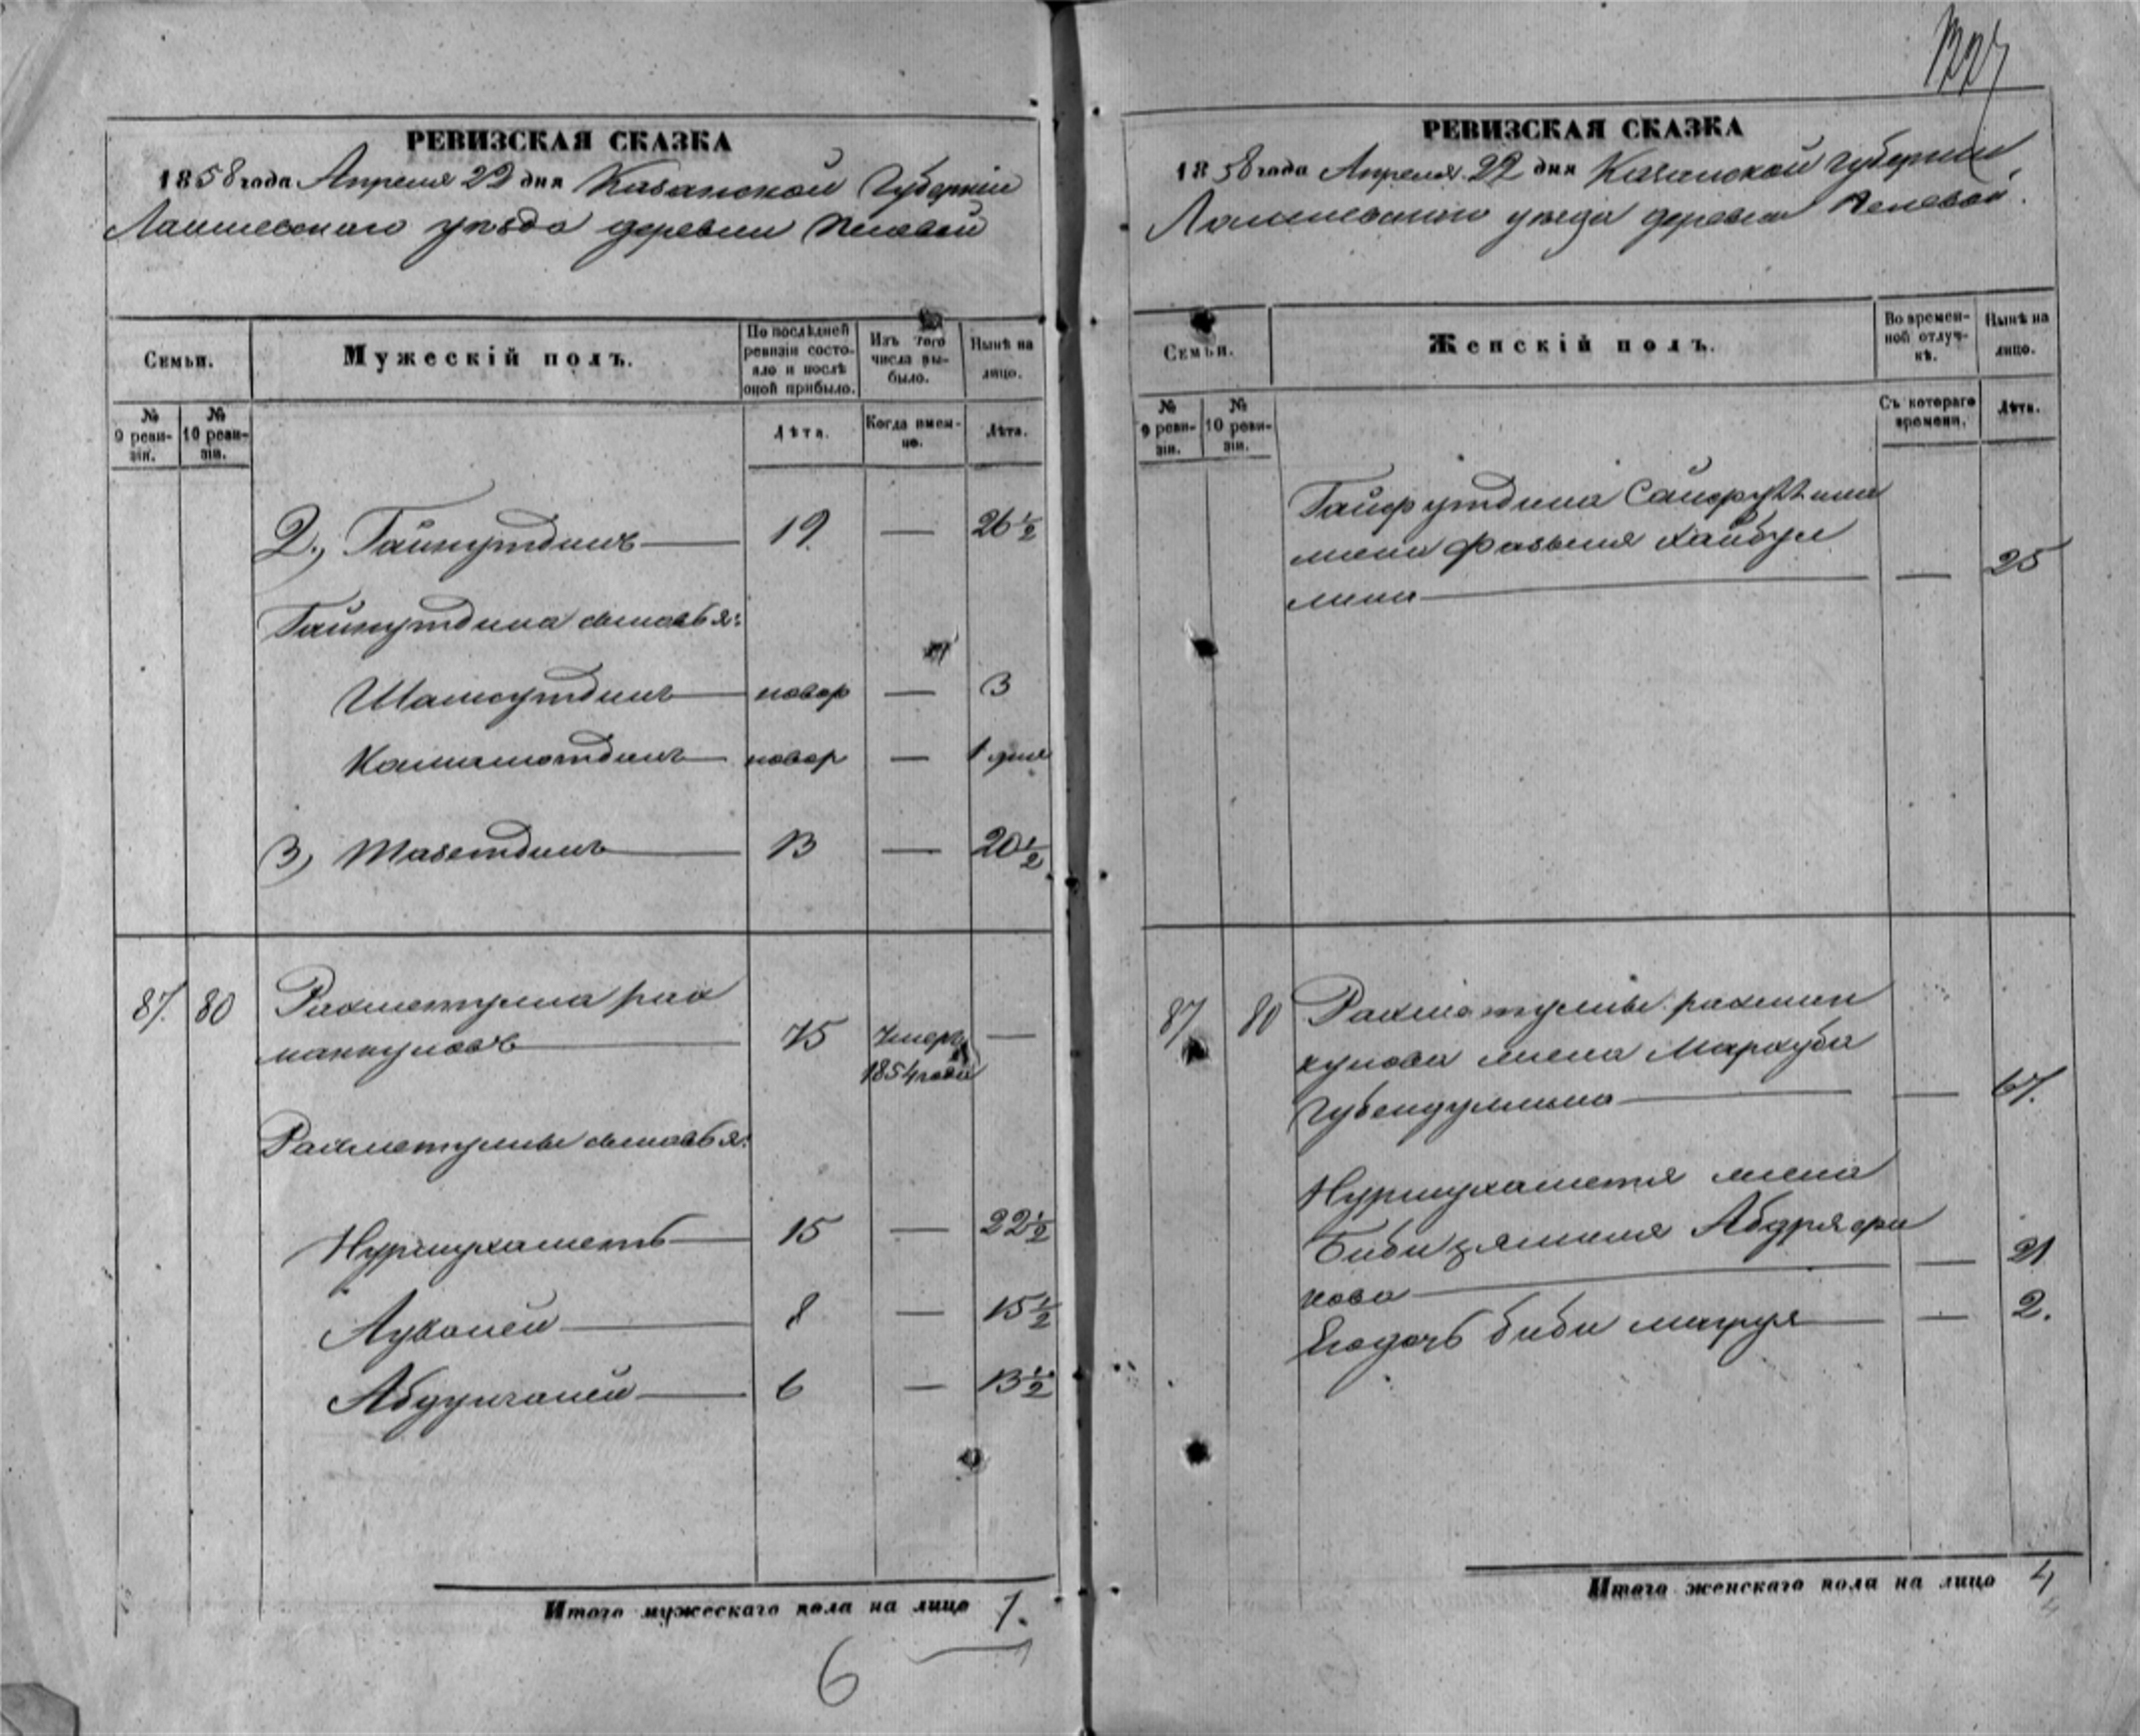 РЕВИЗСКАЯ СКАЗКА
1858 года Апреля 22 дня Казанской Губернiи
Лаишевскаго уезда деревни
Семьи.
Мужескій полъ.
По послѣдней ревизіи состояло и послѣ оной прибыло.
Изъ того числа выбыло.
Нынѣ на лицо.
№ 9 ревизіи.
№ 10 ревизіи.
Лѣта.
Когда именно.
Лѣта.
2., Гайнутдинъ 19. — 26 ½
Гайнутдина сыновья:
Шамсутдинъ новор — 3
Камалютдинъ новор — 1 дня
3, Мазетдинъ 13 — 20 ½
87. 80 Рахметулла рах
манкуловъ 75 Умеръ —
1854 года
Рахметуллы сыновья:
Нурмухаметъ 15 — 22 ½
8 — 15 ½
Абдулганей 6 — 13 ½
Итого мужескаго пола на лицо 7.
6
РЕВИЗСКАЯ СКАЗКА
1858 года Апреля 22 дня Казанской губернiи
Лаишевскаго уезда деревни
Семьи.
Женскій полъ.
Во временной отлучкѣ.
Нынѣ на лицо.
№ 9 ревизіи.
№ 10 ревизіи.
Съ котораго времени.
Лѣта.
жена Хайбул
лина — 25
87 80 Рахматуллы рахман
кулова жена Мархуба
Губейдуллина — 67.
Нурмухаметя жена
Биби
кова — 21
Егодочь биби — 2.
Итого женскаго пола на лицо 4
4